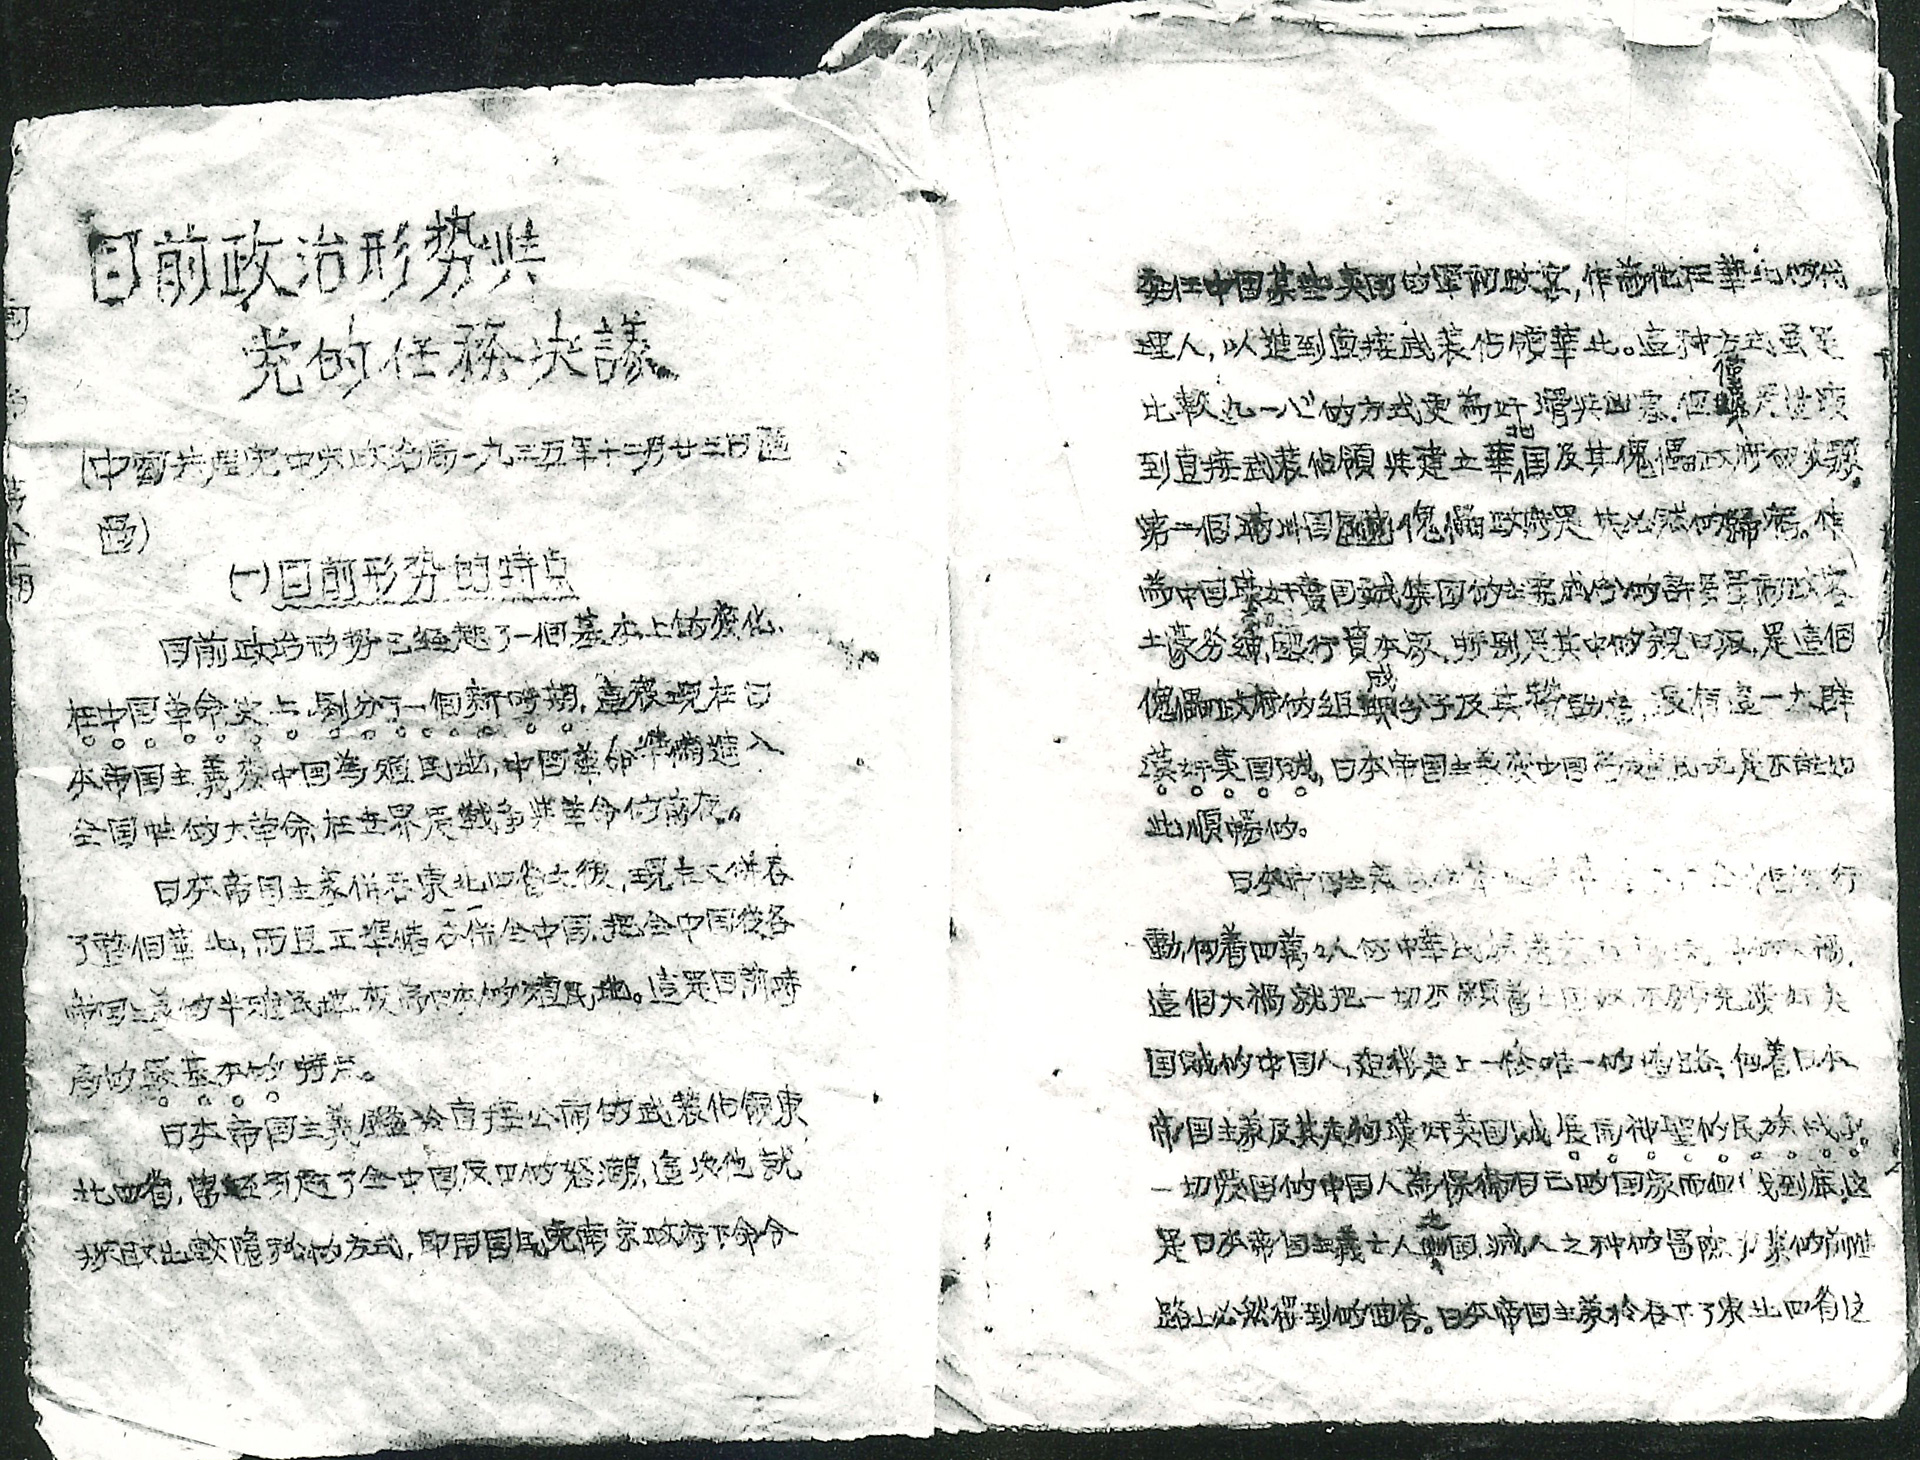 目前政治形势与
党的任務决議
(中國共產党中央政治局一九三五年十二月廿三日通
過)
(一)目前形势的特点
目前政治形势已經起了一個基本上的变化,
在中国革命史上,劃分了一個新時期,這表現在日
本帝国主義变中国為殖民地,中国革命準備進入
全国性的大革命,在世界是戰争与革命的前夜。
日本帝国主義併吞東北四省之後,現在又併吞
了整個華北,而且正準備吞併全中国,把全中国從各
帝国主義的半殖民地,变為日本的殖民地。這是目前時
局的最基本的特点。
日本帝国主義鑑於直接公開的武裝佔領東
北四省,曾經引起了全中国反日的怒潮,這次他就
採取比較隐秘的方式,即用国民党南京政府下命令
委任中国某些卖国的軍阀政客,作為他在華北的代
理人,以進到直接武装佔領華北。這种方式虽是
比較九一八的方式更為奸滑与凶惡,但僅是進攻
到直接武装佔領与建立華北国及其傀儡政府的步驟。
第二個滿洲国傀儡政府是其必然的歸宿。作
為中国漢奸賣国賊集团的主要成份的許多軍阀政客
土豪劣紳,銀行資本家,特别是其中的親日派,是這個
傀儡政府的組成份子及其帮助者,没有這一大群
漢奸卖国賊,日本帝国主義变中国為殖民地是不能如
此順暢的。
日本帝国主義行
動,向着四萬万人的中華民族大禍,
這個大禍就把一切不願當亡国奴,不願充漢奸卖
国賊的中国人,迫得走上一條唯一的道路:向着日本
帝国主義及其走狗漢奸卖国賊展開神聖的民族战争。
一切爱国的中国人為保衛自己的国家而血战到底,這
是日本帝国主義亡人之国,滅人之种的冒險政策的前進
路上必然得到的回答。日本帝国主義於吞下了東北四省這